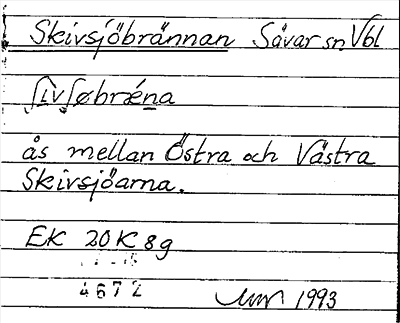 Skivsjöbrännan Sävar sn Vbl
ʃìvʃøbrǽna
ås mellan Östra och Västra
Skivsjöarna.
EK 20K 8g
4672
1993